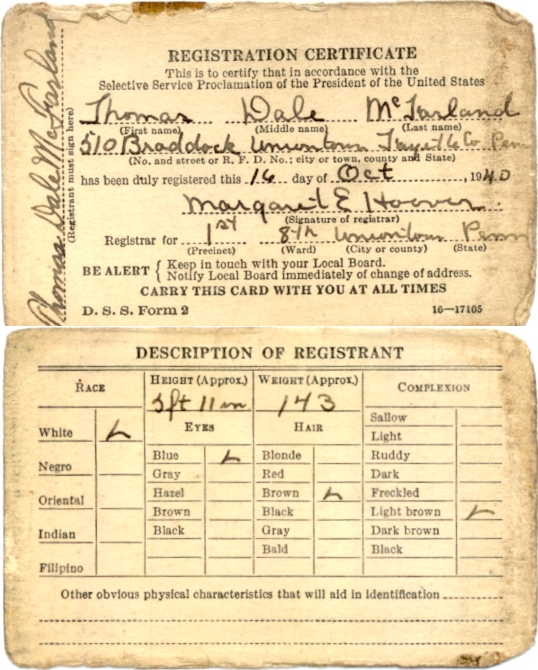 REGISTRATION CERTIFICATE
This is to certify that in accordance with the
Selective Service Proclamation of the President of the United States
Thomas Dale McFarland
(First name) (Middle name) (Last name)
510 Braddock Uniontown Fayette Co. Penn
(No. and street or R. F. D. No.; city or town, county and State)
has been duly registered this 16 day of Oct, 1940
Margaret E Hoover
(Signature of registrar)
Registrar for 1st 8th Uniontown Penn
(Precinct) (Ward) (City or county) (State)
BE ALERT { Keep in touch with your Local Board.
Notify Local Board immediately of change of address.
CARRY THIS CARD WITH YOU AT ALL TIMES
D. S. S. Form 2 16—17105
Thomas Dale McFarland
(Registrant must sign here)
DESCRIPTION OF REGISTRANT
RACE HEIGHT (Approx.) WEIGHT (Approx.) COMPLEXION
5ft 11in 143
EYES HAIR
Sallow
White Light
Blue Blonde Ruddy
Negro Gray Red Dark
Oriental Hazel Brown Freckled
Brown Black Light brown
Indian Black Gray Dark brown
Bald Black
Filipino
Other obvious physical characteristics that will aid in identification